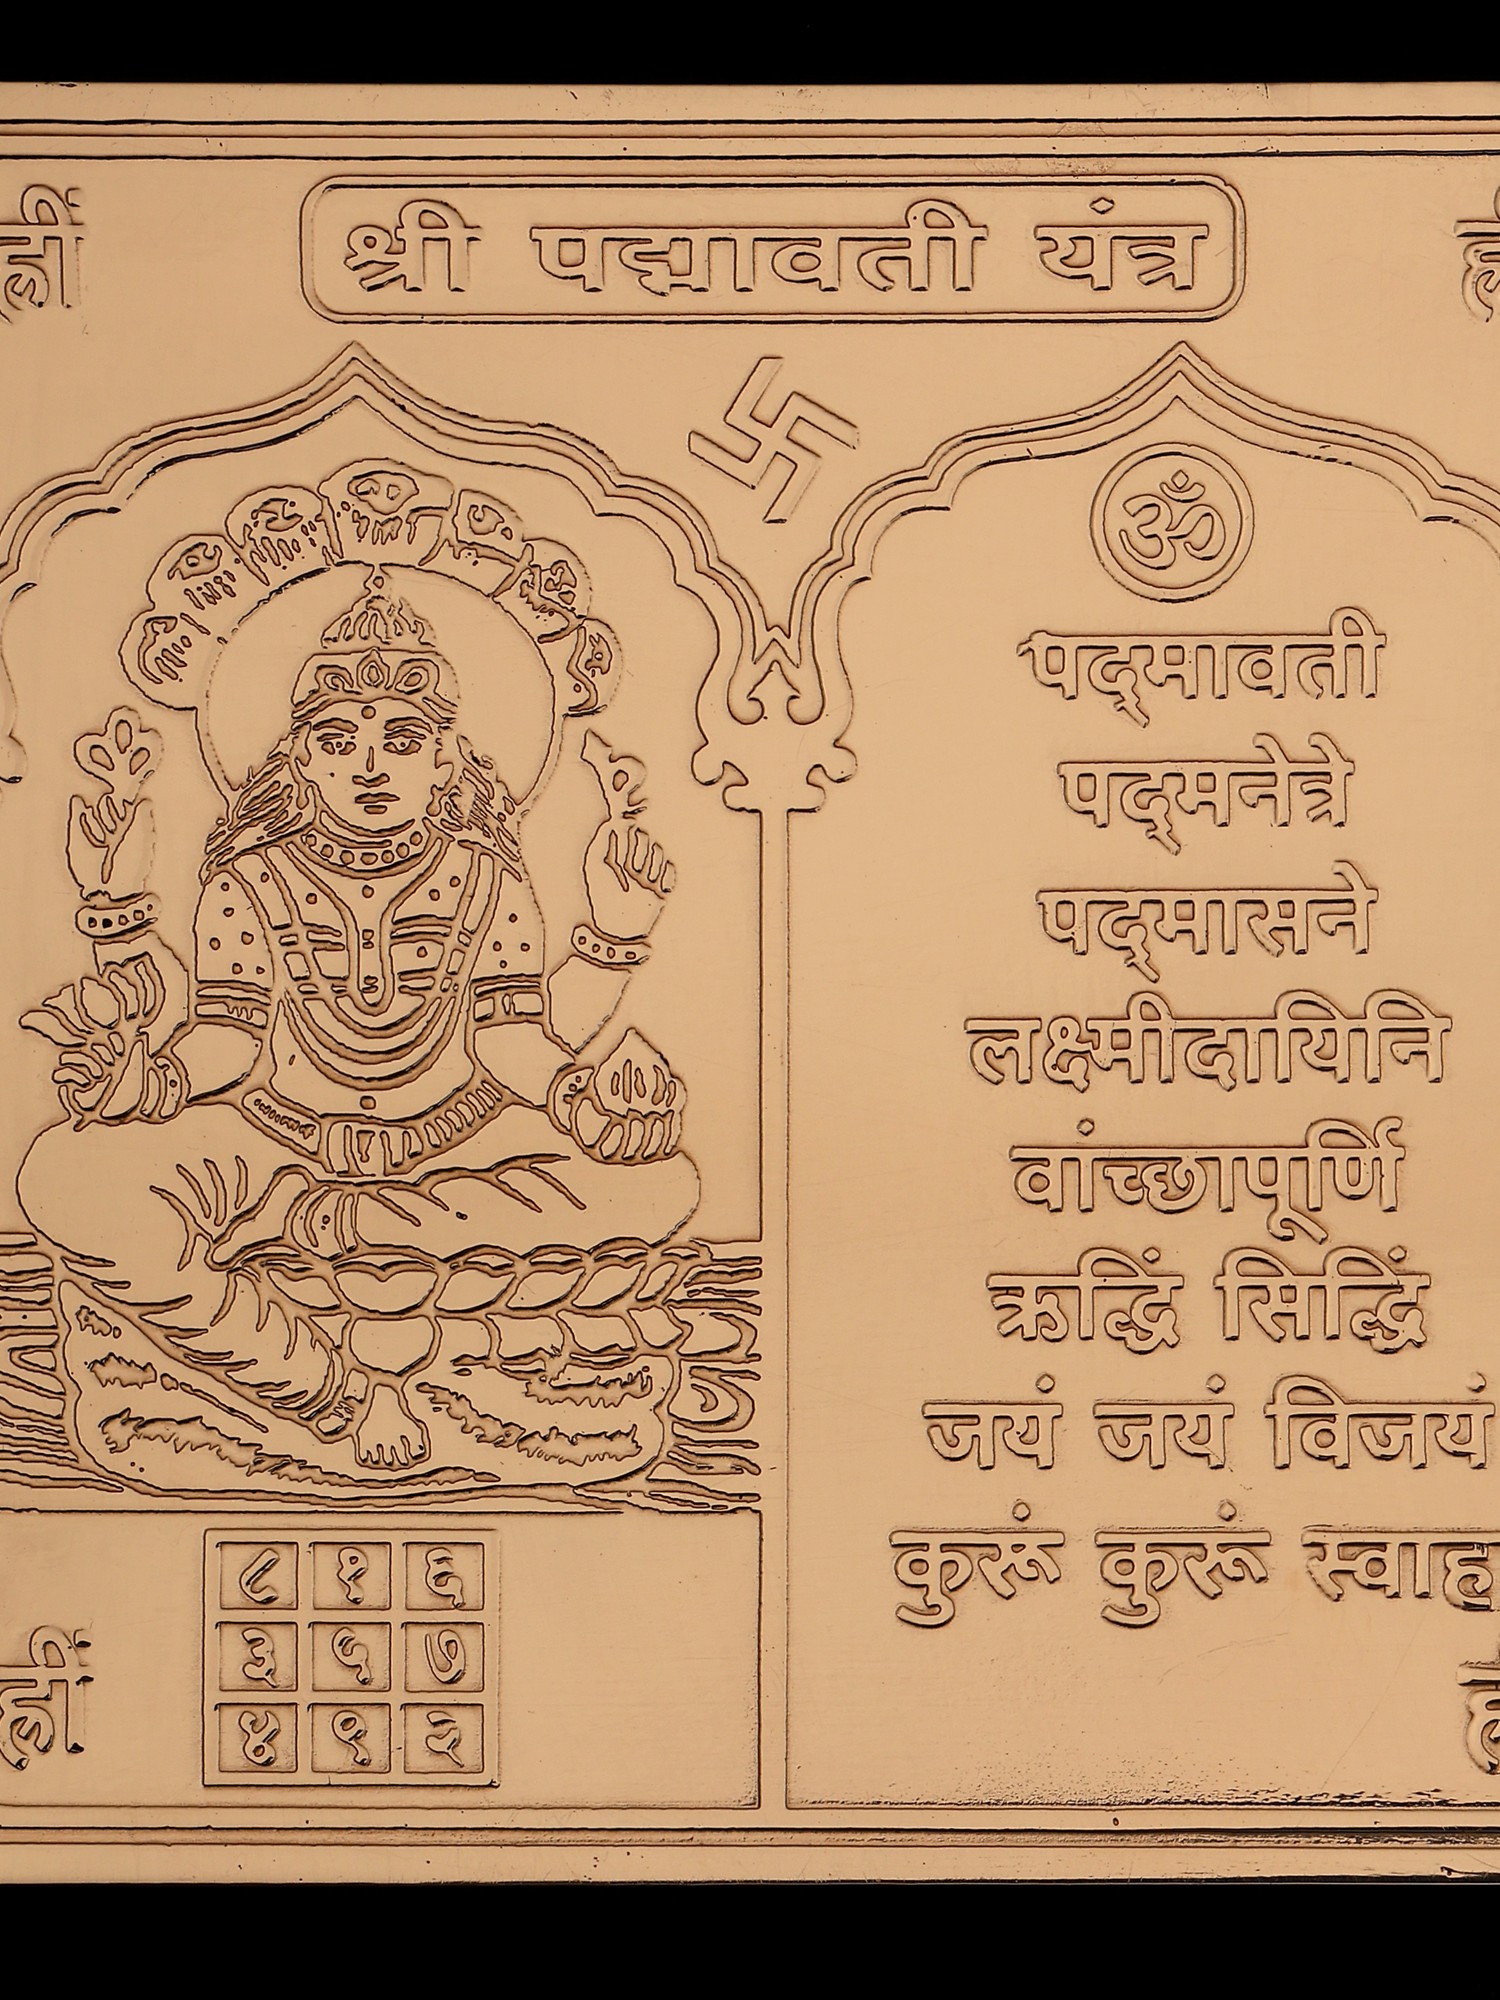 श्री पद्मावती यंत्र
ॐ
पद्‌मावती
पद्‌मनेत्रे
पद्‌मासने
लक्ष्मीदायिनि
वांच्छापूर्णि
ऋद्धिं सिद्धिं
जयं जयं विजयं
कुरूं कुरूं
८ १ ६
३ ५ ७
४ ९ २